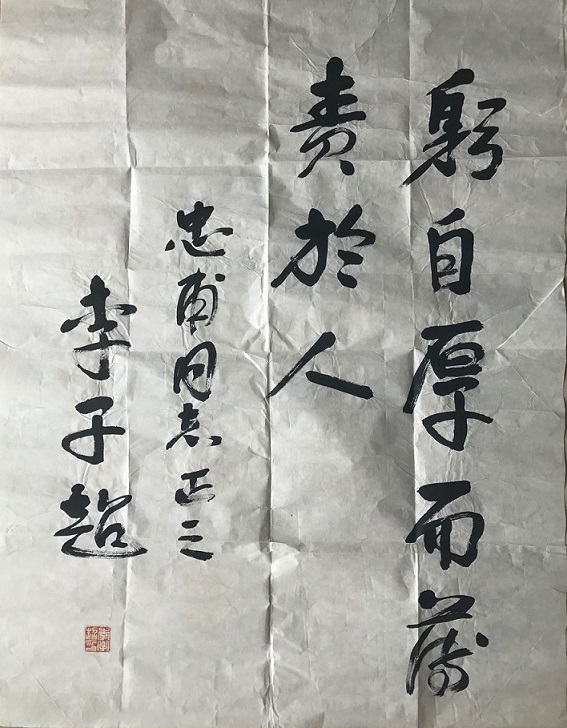 躬自厚而薄
責於人
忠甫同志正之
李子超